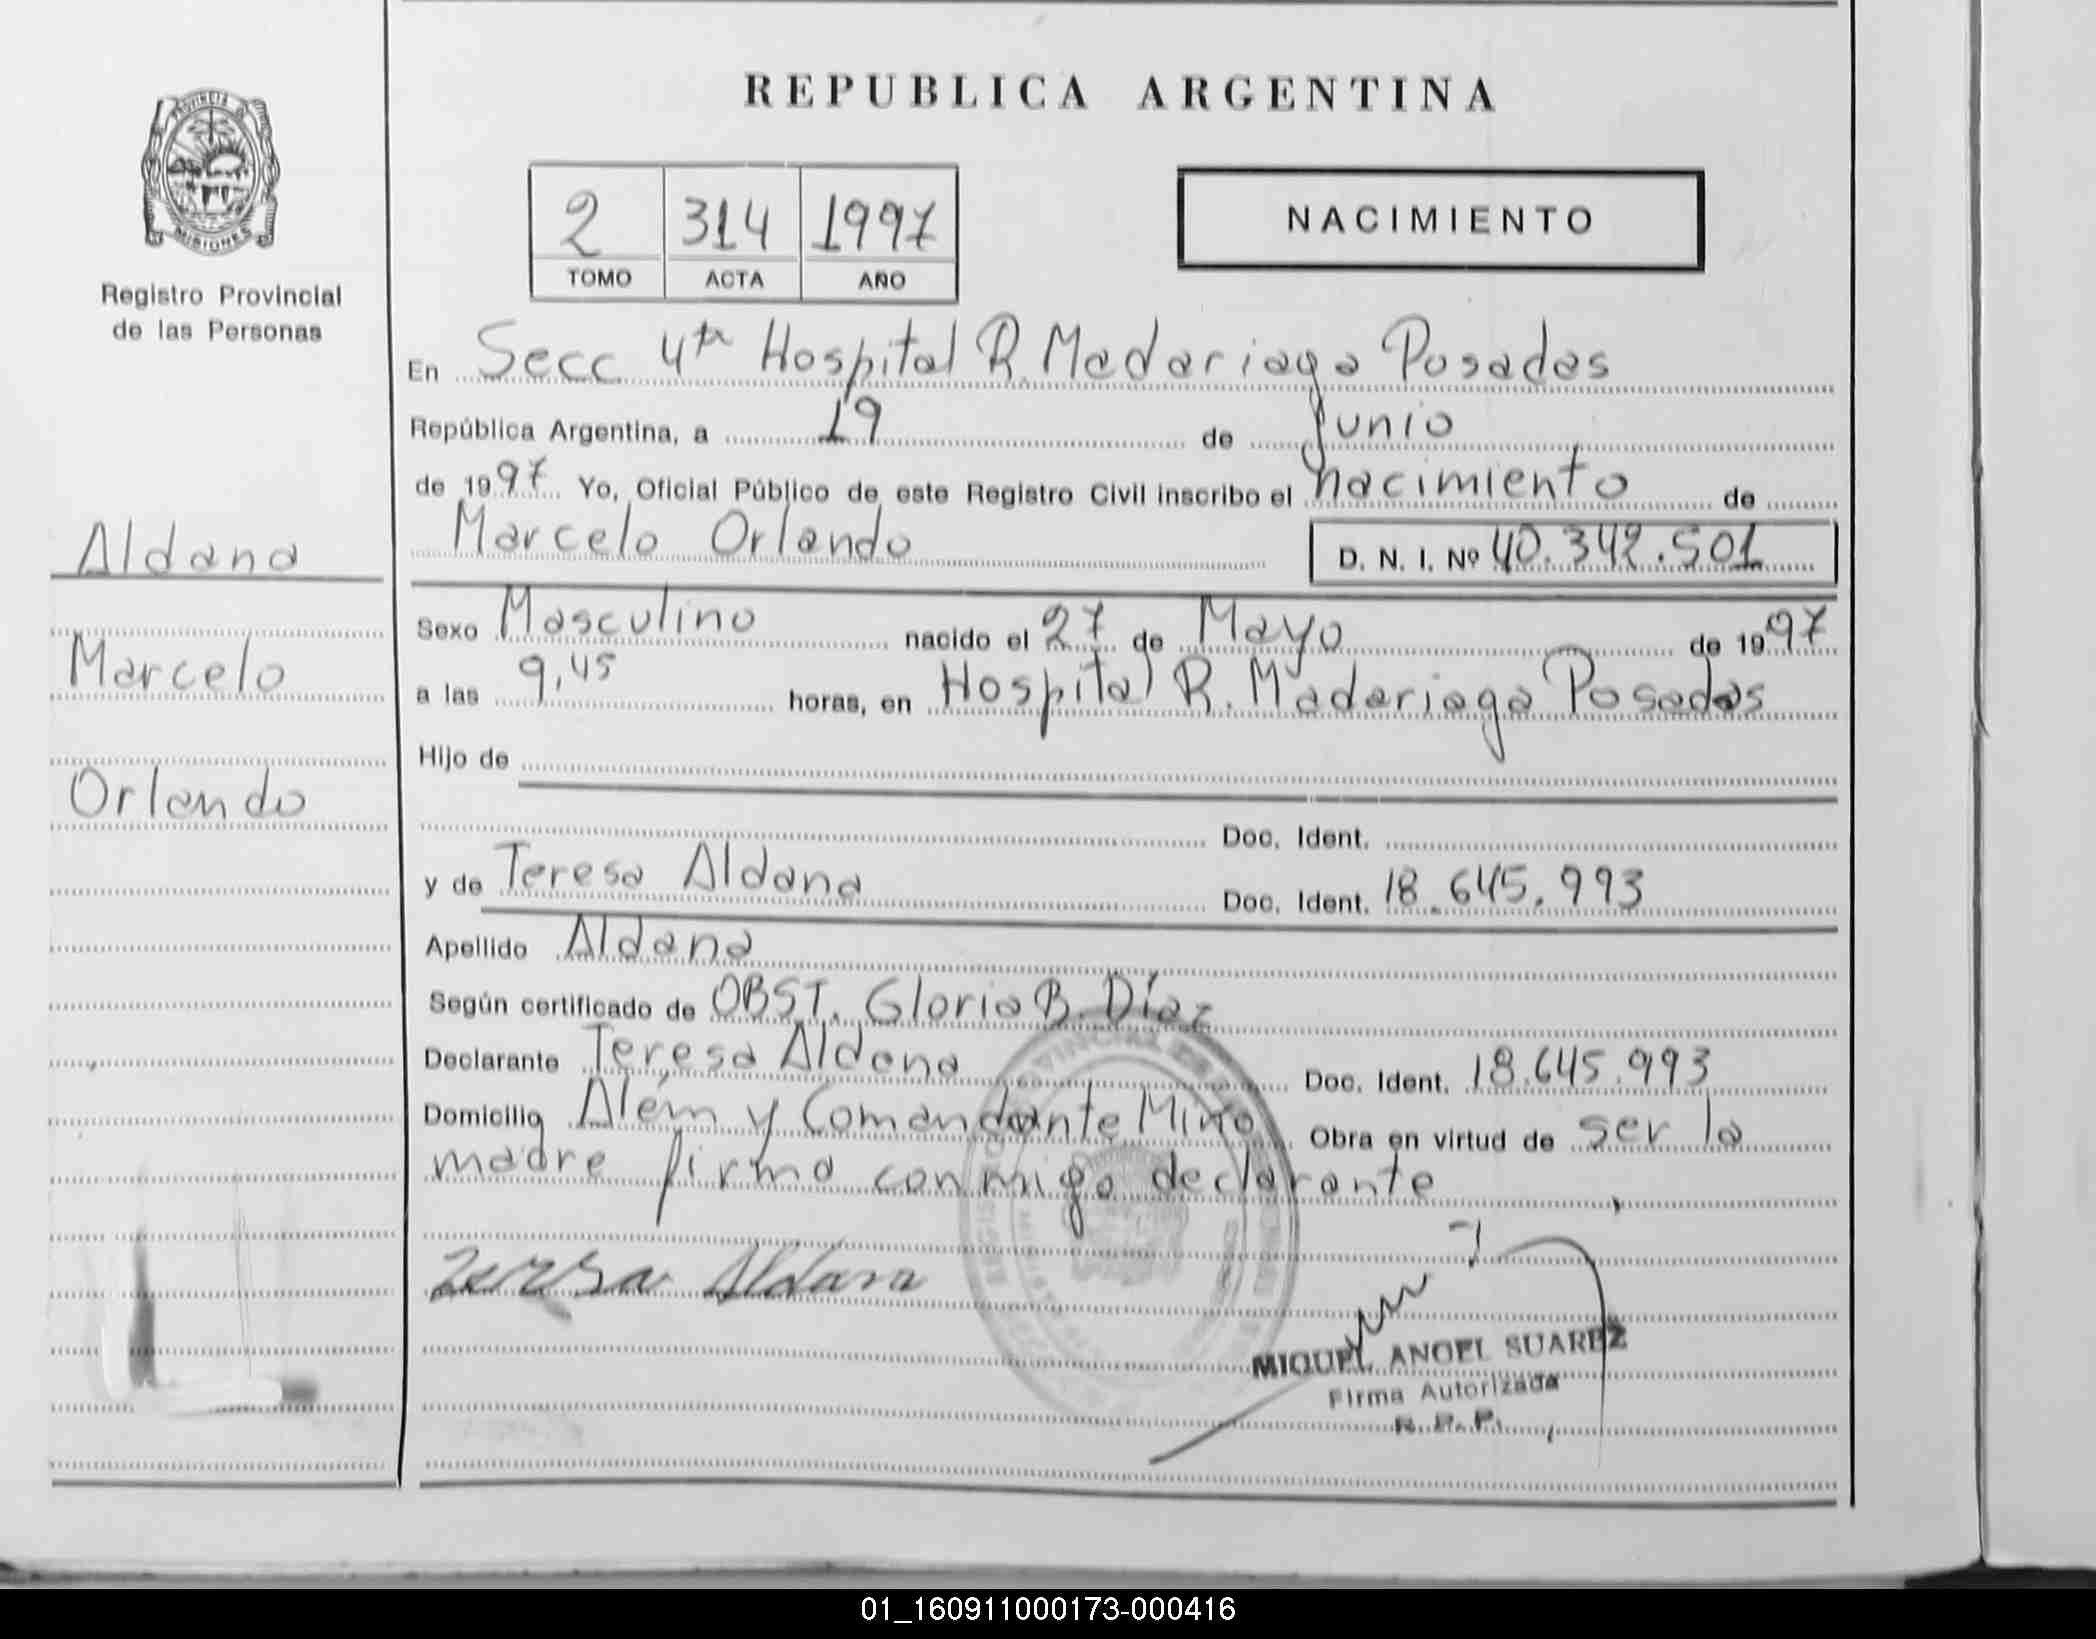 REPUBLICA ARGENTINA
PROVINCIA
MISIONES
Registro Provincial
de las Personas
2 314 1997
TOMO ACTA AÑO
NACIMIENTO
En Secc 4ta Hospital R. Madariaga Posadas
República Argentina, a 19 de Junio
de 1997 Yo, Oficial Público de este Registro Civil inscribo el nacimiento de
Marcelo Orlando D. N. I. Nº 40.342.501
Aldana
Marcelo
Orlando
Sexo Masculino nacido el 27 de Mayo de 1997
a las 9,45 horas, en Hospital R. Madariaga Posadas
Hijo de
Doc. Ident.
y de Teresa Aldana Doc. Ident. 18.645.993
Apellido Aldana
Según certificado de OBST. Gloria B. Díaz
Declarante Teresa Aldana Doc. Ident. 18.645.993
Domicilio Além y Comandante Miño Obra en virtud de ser la
madre firma conmigo declarante
Teresa Aldana
MIGUEL ANGEL SUAREZ
Firma Autorizada
R. P. P.
01_160911000173-000416